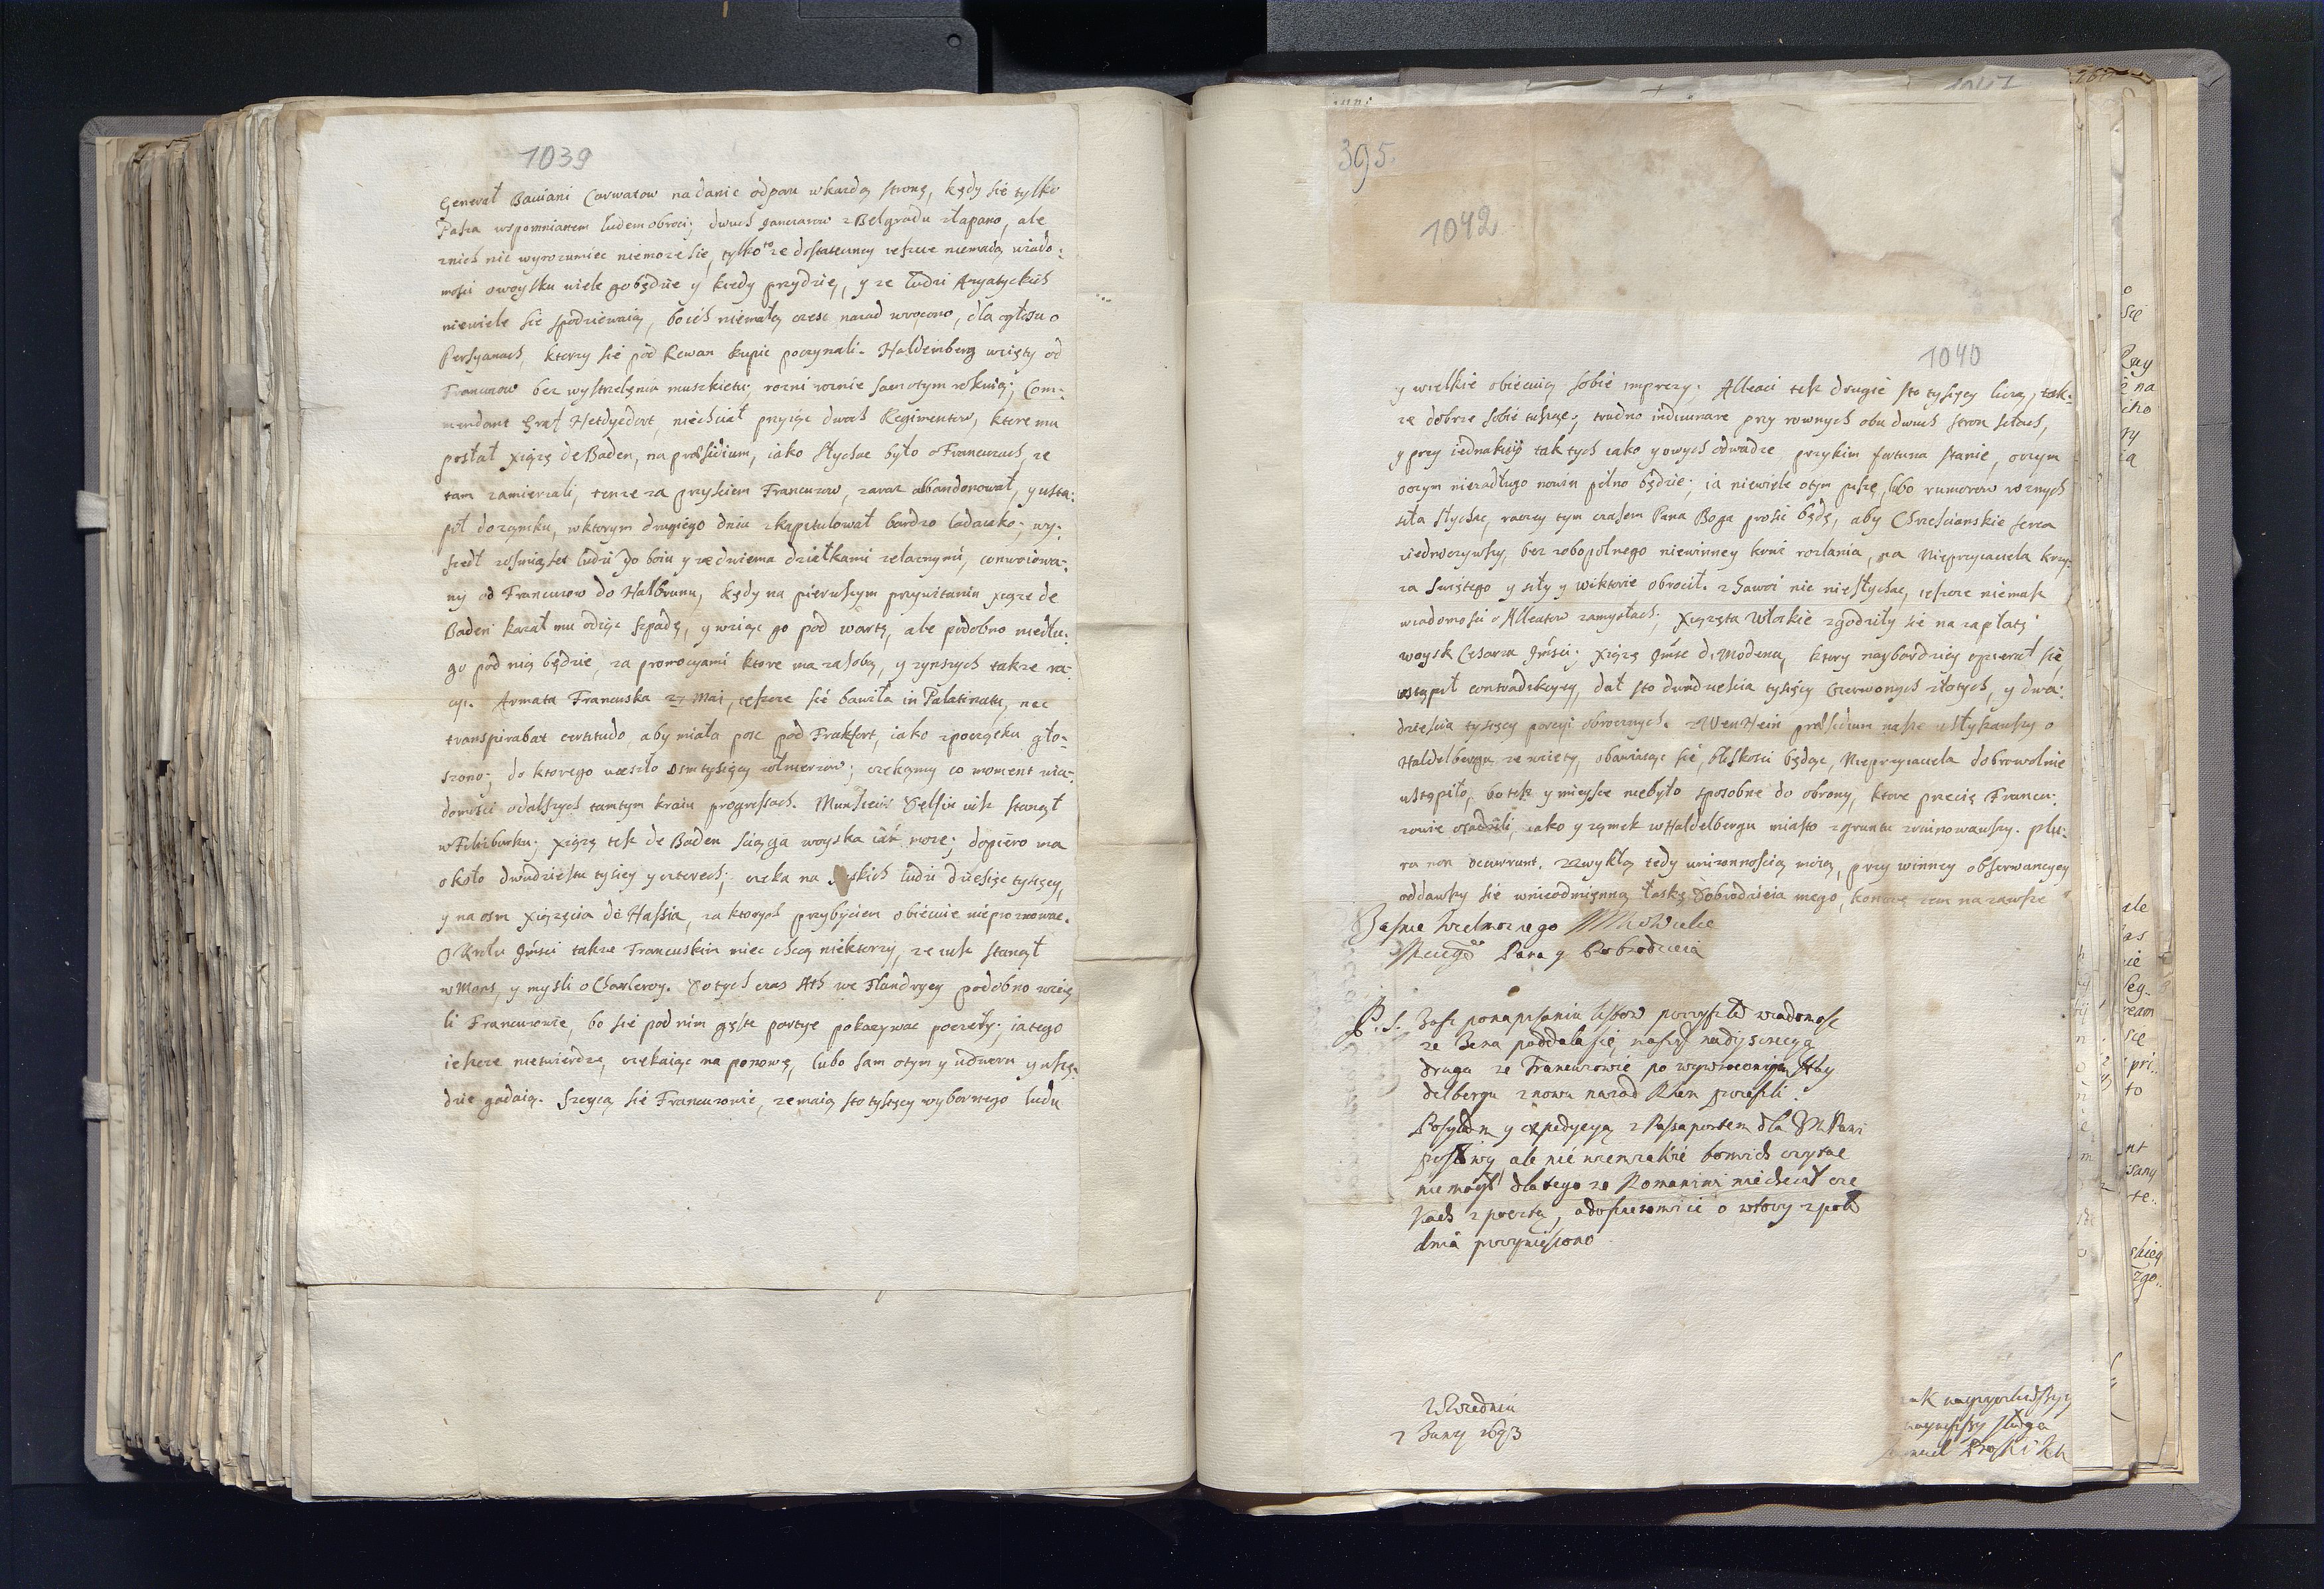 1039
Generał Baviani Carwatow na danie odporu w kazdą stronę, kędy się tylko
Pasza wspomnianem ludem obroci; dwuch Janczarow z Belgradu złapano, ale
znich nic wyrozumiec niemoze się, tylko to ze dostateczney ieszcze niemaią wiado:
mosci o woysku wiele go będzie y kiedy przydzie, y ze ludzi Azyatyckich
niewiele się spodziewaią, bo ich niemałą częsc nazad wrocono, dla głosu o
Persyanach, ktorzy się pod Rewan kupic poczynali. Haldelberg wzięty od
Francuzow bez wystrzelęnia muszkietu; rozni roznie sam o tym
Com:
mendant Graf niechciał przyiąc dwoch Regimentow, ktore mu
posłał xiąze de Baden, na præsidium, iako słychac było o Francuzach, ze
tam zamierzali, tenze za przysciem Francuzow, zaraz abbandonował, y ustą:
pił do zamku, w ktorym drugiego dnia zkapitulował bardzo ladaiako; wy:
szedł z ludzi do boiu y ze dwiema działkami zelaznymi, conwoiowa:
ny od Francuzow do Halbrunu, kędy na pierwszym przywitaniu xiąze de
Baden kazał mu odiąc szpadę, y wziąc go pod wartę, ale podobno niedłu:
go pod nią będzie, za promocyami ktore ma za sobą, y zynszych takze ra:
cyi. Armata Francuska 27 Maii, ieszcze się bawiła in Palatinatu, nec
transpirabat certitudo, aby miała posc pod Frakfort, iako zpoczątku gło:
szono; do ktorego weszło osm tysięcy zołnierzow; czekamy co moment wia:
domosci o dalszych tamtym kraiu progressach. Munsieur Delfin iusz stanął
w Filisburku; xiąze tesz de Baden sciąga woyska iak moze; dopiero ma
około dwudziestu tysięcy y czterech; czeka na ludzi dziesięc tysięcy,
y na osm xiązęcia de Hassia, za ktorych przybyciem obiecuie nieproznowac.
O Krolu Jmsci takze Francuskim miec chcą niektorzy, ze iusz stanął
w Mons, y mysli o Charleroy. Do tych czas Ath we Flandryey podobno wzię
li Francuzowie, bo się pod nim gęste partye pokazywac poczęły; ia tego
ieszcze nietwierdzę, czekaiąc na ponowę, lubo sam o tym y u dworu y wszę:
dzie gadaią. Szczycą się Francuzowie, ze maią sto tysięcy wybornego ludu
395.
1042
1040
y wielkie obiecuią sobie imprezy; Alleaci tesz drugie sto tysięcy liczą, tak:
ze dobrze sobie tuszą; trudno indiwinare przy rownych obu dwuch stron siłach,
y przy iednakiey tak tych iako y owych odwadze przy kim fortuna stanie, o czym
o czym niezadługo nowin pełno będzie; ia niewiele o tym piszę, lubo rumorow roznych
siła słychac, raczey tym czasem Pana Boga prosic będę, aby Chrzescianskie serca
ziednoczywszy, bez zobopolnego niewinney krwi rozlania, na Nieprzyiaciela krzy:
za Swiętego y siły y wiktorie obrocił. z Sawoi nic niesłychac, ieszcze niemasz
wiadomosci o Alleatow zamysłach; xiązęta Włoskie zgodziły się na zapłatę
woysk Cesarza Jmsci; xiąze Jmsc di Modena, ktory naybardziey opierał się,
ustąpił contradikcyey, dał sto dwadziescia tysięcy czerwonych złotych, y dwa:
dziescia tysięcy porcyi obrocznych. præsidium nasze usłyszawszy o
Haldelbergu ze wzięty, obawiaiąc się, bliskosci będąc, Nieprzyiaciela dobrowolnie
ustąpiło, bo tesz y mieysce niebyło sposobne do obrony, ktore przecię Francu:
zowie osadzili, iako y zamek w Haldelbergu miasto z gruntu zruinowawszy. plu:
ra non occurrunt. zawykłą tedy unizonnoscią moią, przy winney obserwancyey
oddawszy się w nieodmięnną łaskę Dobrodzieia mego, zem na zawsze
Jasnie Wielmoznego
Pana y Dobrodzieia
P. S. Jusz ponapisaniu listow przyszła wiadomosc
ze Jena poddała się
druga ze Francuzowie po wywroconiu Hay
delbergu znowu nazad Rhen przeszli.
Posyłam y expedycyą z Passaportem dla
ale nie bom ich czytac
niemogł dlatego ze Romanini niechciał cze
kac z pocztą, a o wtory z poł
dnia przyniesiono
z Wiednia
7 Juny 1693
nayzyczliwszy y
naynizszy sługa